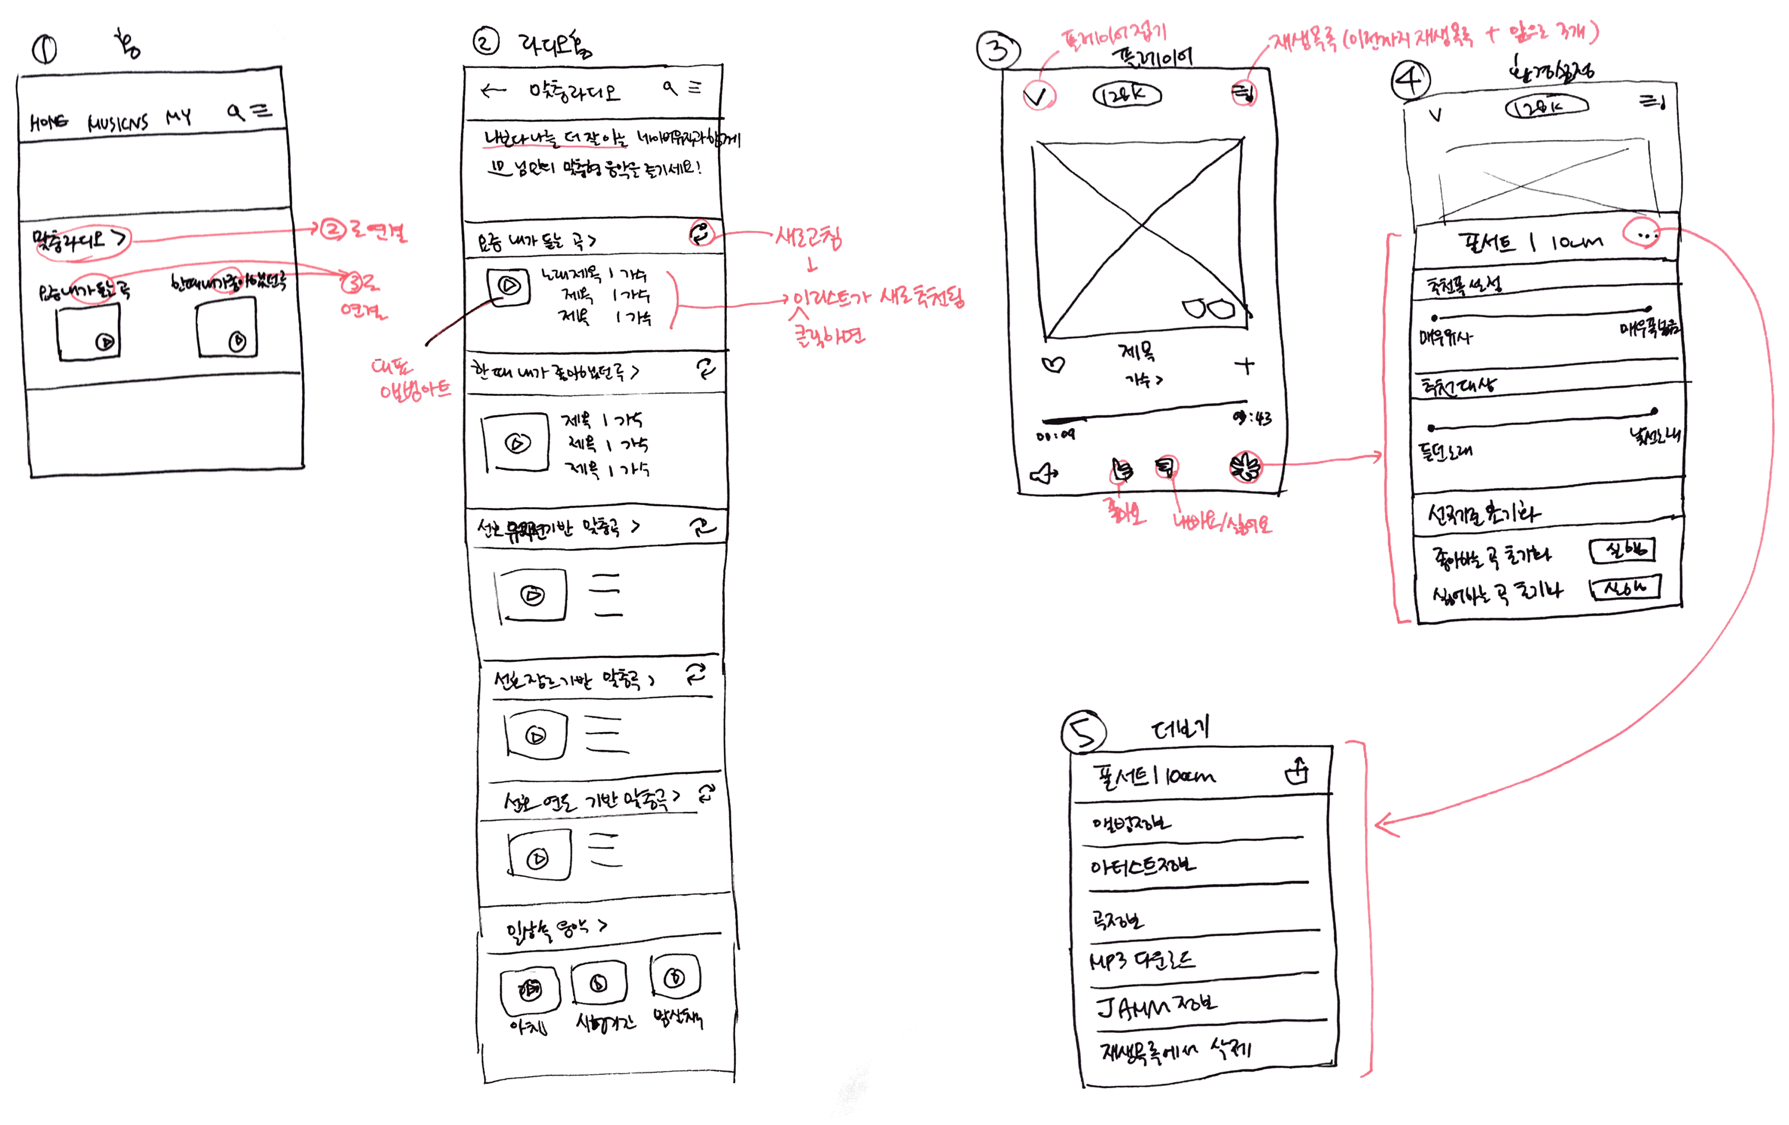 ① 홈
HOME MUSICNS MY
맞춤라디오 >
②로 연결
요즘 내가 듣는 곡
한때 내가 좋아했던 곡
③로
연결
② 라디오홈
← 맞춤라디오
나보다 나를 더 잘 아는 네이버뮤직과 함께
ID 님만의 맞춤형 음악을 즐기세요!
요즘 내가 듣는 곡 >
새로고침
노래제목 | 가수
제목 | 가수
제목 | 가수
리스트가 새로 추천됨
클릭하면
대표
앨범아트
한때 내가 좋아했던 곡 >
제목 | 가수
제목 | 가수
제목 | 가수
선호 기반 맞춤곡 >
선호 장르 기반 맞춤곡 >
선호 연도 기반 맞춤곡 >
일상속 음악 >
아침
시험기간
밤산책
③ 플레이어
플레이어 접기
재생목록 (이전까지 재생목록 + 앞으로 3개)
128K
제목
가수 >
00:09
03:43
좋아요
싫어요
④ 환경설정
128K
폰서트 | 10cm
...
추천폭 설정
매우유사
매우폭넓음
추천대상
듣던노래
낯선노래
선곡기준 초기화
좋아하는 곡 초기화 실행
싫어하는 곡 초기화 실행
⑤ 더보기
폰서트 | 10cm
앨범정보
아티스트정보
곡정보
MP3 다운로드
JAMM 정보
재생목록에서 삭제